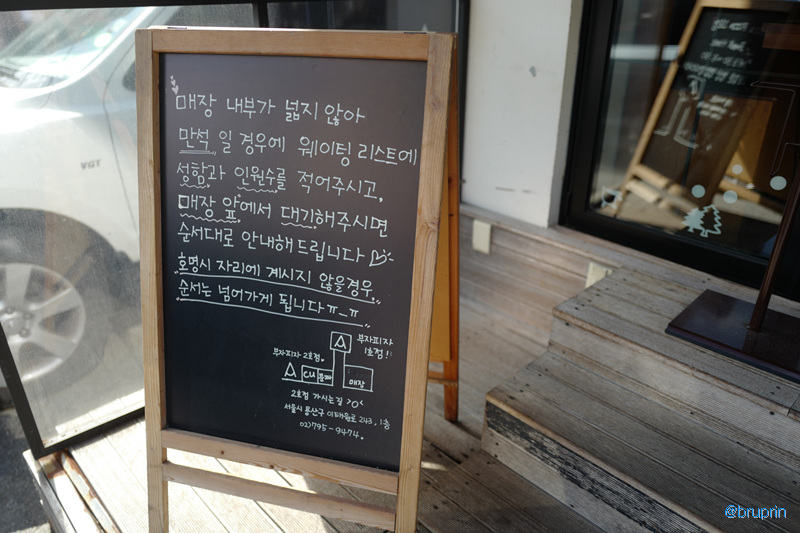 매장 내부가 넓지 않아
만석 일 경우에 웨이팅 리스트에
성함과 인원수를 적어주시고,
매장 앞에서 대기해주시면
순서대로 안내해드립니다
호명시 자리에 계시지 않을경우,
순서는 넘어가게 됩니다ㅠ_ㅠ
부자피자
1호점!!
부자피자 2호점.
CU
매장
2호점 가시는길 >o<
서울시 용산구 이태원로 243, 1층
02)795-9474.
VGT
@bruprin